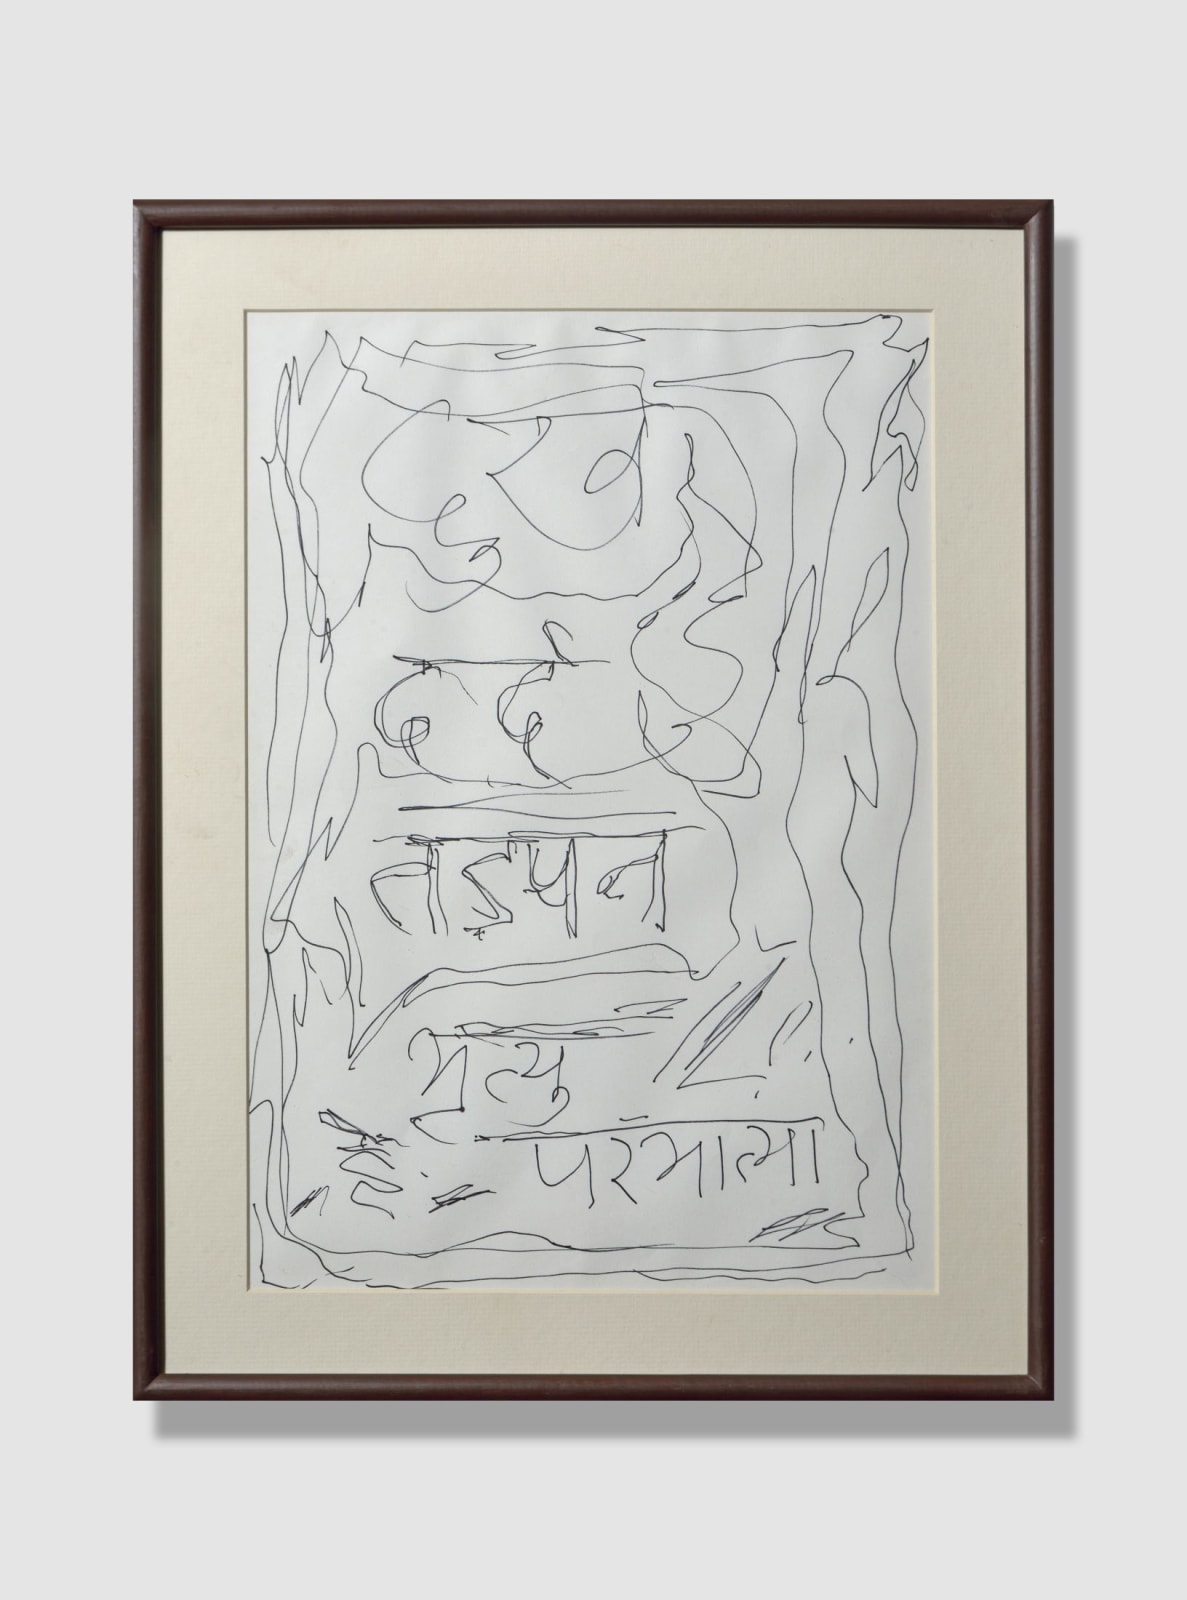 दुख
दर्द
तड़पन
मृत्यु
है परमात्मा